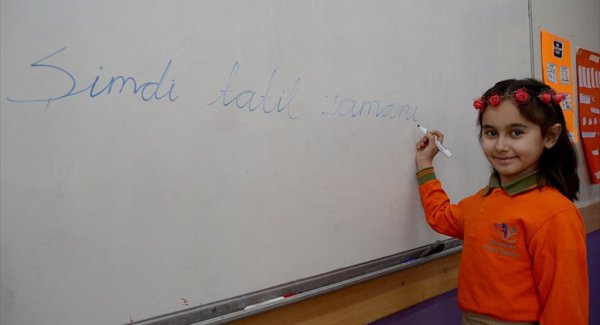 Şimdi tatil zamanı